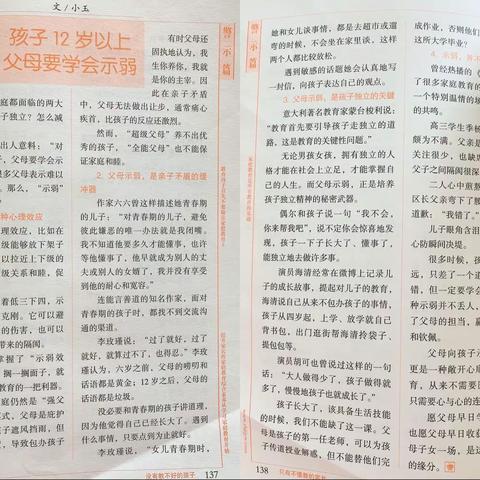 文/小玉
孩子12岁以上
父母要学会示弱
庭都面临的两大
子独立？怎么减
出人意料：“对
子，父母要学会示
很多父母表示难以
那么，“示弱”
种心理效应
理效应，比如在
级能够放下架子
以拉近上下级的
级关系和睦，促
着低三下四，示
克刚。它可以避
的伤害，也可以
带来的隔阂。
掌握了“示弱效
，搁一搁面子，就
教育的一把利器。
庭仍然是“强父
模式，父母是庇护
子遮风挡雨，但
导致包办孩子
有时父母还
固执地认为，我
生你养你，我就
是你的主宰。因
此在亲子矛盾
中，父母无法做出让步，通常痛心
疾首，比孩子的反应还激烈。
然而，“超级父母”养不出优
秀的孩子，“全能父母”也不能保
证家庭和睦。
2. 父母示弱，是亲子矛盾的缓
冲器
作家六六曾这样描述她青春期
的儿子：“对青春期的儿子，避免
彼此嫌恶的唯一办法就是我闭嘴。
我不知道他要多久才能懂事，也许
等他懂事了，他早就成为别人的丈
夫或别人的女婿了，我并没有享受
到他的耐心和宽容。”
连能言善道的知名作家，面对
青春期的孩子时，都找不到交流沟
通的渠道。
李玫瑾说：“过了就好，过了
就好，就算过不了，也得忍。”李玫
瑾认为，六岁之前，父母的唠叨和
话语都是黄金；12岁之后，父母的
话语都是垃圾。
没必要和青春期的孩子讲道理，
因为他觉得自己已经长大了。遇到
什么事情，只要点到为止就好。
李玫瑾说，“女儿青春期时，
没有教不好的孩子 137
警示篇
她和女儿谈事情，都是去超市或遛
弯的时候，不会坐在家里谈，这样
两个人都比较放松。
遇到敏感的话题她会认真地写
一封信，向孩子表达自己的观点。
3. 父母示弱，是孩子独立的关键
意大利著名教育家蒙台梭利说：
“教育首先要引导孩子走独立的道
路，这是教育的关键性问题。”
无论男孩女孩，拥有独立的人
格才能在社会上立足，才能掌握自
己的人生。而父母示弱，正是培养
孩子独立精神的秘密武器。
偶尔和孩子说一句“我不会，
你来帮我吧”，说不定你会惊喜地发
现，孩子一下子长大了、懂事了，
能独立地去做许多事。
演员海清经常在微博上记录儿
子的成长故事，提起对儿子的教育，
海清说自己从来不包办孩子的事情，
孩子从四岁起，上学、放学就自己
背书包，出门逛街帮海清拎袋子、
提包包等。
演员胡可也曾说过这样的一句
话：“大人做得少了，孩子做得就
多了，慢慢地孩子也就成长了。”
孩子长大了，该具备生活技能
的时候，我们不能缺了这一课。父
母是孩子的第一任老师，可以为孩
子传道授业解惑，但不能替他们完
138 只有不懂教的家长
警示篇
成作业，否则他们
这所大学毕业？
4. 示弱，并不
曾经热播的《
了很多家庭教育的
一个特别温情的场
的共鸣。
高三学生季杨
颇为不满。父亲是
关注很少，也缺席
父子之间隔阂很深
二人心中煎熬
区长父亲弯下了腰
道歉：“我错了。”
儿子眼角含泪
心防瞬间决堤。
很多时候，孩
远，只差了一个道
种示弱并不丢人，
了父母的担当，赢
和钦佩。
父母向孩子示
更是一种敞开心扉
育，从来不需要压
只需要心与心的连
愿父母早日学
也愿父母早日收获
母子女一场，是这
的缘分。